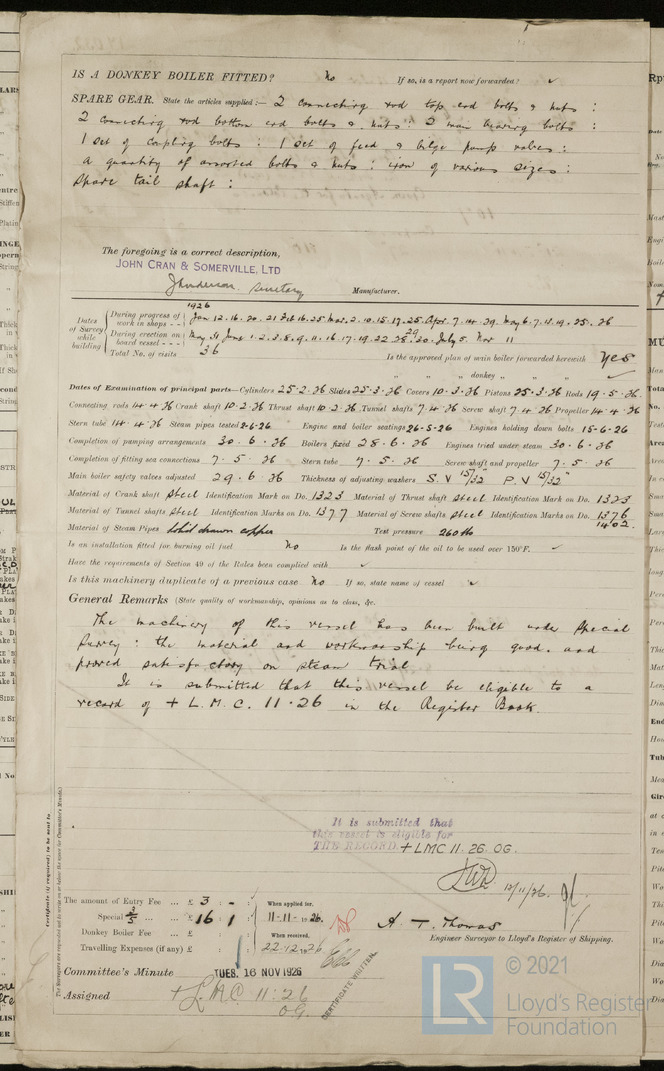 IS A DONKEY BOILER FITTED? No If so, is a report now forwarded? ✓
SPARE GEAR. State the articles supplied:— 2 connecting rod top end bolts & nuts :
2 connecting rod bottom end bolts & nuts : 2 main bearing bolts :
1 set of coupling bolts : 1 set of feed & bilge pump valves :
a quantity of assorted bolts & nuts : iron of various sizes :
Spare tail shaft :
The foregoing is a correct description,
JOHN CRAN & SOMERVILLE, LTD
Secretary Manufacturer.
1926
Dates of Survey while building
During progress of work in shops - - Jan 12. 16. 20. 21 Feb 16. 25 Mar. 2. 10. 15. 17. 25. Apr. 7. 14. 29. May 6. 7. 12. 19. 25. 26
During erection on board vessel - - - May 31 June 1. 2. 3. 8. 9. 11. 16. 17. 19. 22 28. 29 30. July 5. Nov 11
Total No. of visits 36 Is the approved plan of main boiler forwarded herewith Yes
" " " donkey " " " ✓
Dates of Examination of principal parts—Cylinders 25-2-26 Slides 25-3-26 Covers 10-3-26 Pistons 25-3-26 Rods 19-5-26
Connecting rods 14-4-26 Crank shaft 10-2-26 Thrust shaft 10-2-26 Tunnel shafts 7-4-26 Screw shaft 7-4-26 Propeller 14-4-26
Stern tube 14-4-26 Steam pipes tested 2-6-26 Engine and boiler seatings 26-5-26 Engines holding down bolts 15-6-26
Completion of pumping arrangements 30-6-26 Boilers fixed 28-6-26 Engines tried under steam 30-6-26
Completion of fitting sea connections 7-5-26 Stern tube 7-5-26 Screw shaft and propeller 7-5-26
Main boiler safety valves adjusted 29.6.26 Thickness of adjusting washers S.V 15/32" P.V 15/32"
Material of Crank shaft Steel Identification Mark on Do. 1323 Material of Thrust shaft Steel Identification Mark on Do. 1323
Material of Tunnel shafts Steel Identification Marks on Do. 1377 Material of Screw shafts Steel Identification Marks on Do. 1376
1402.
Material of Steam Pipes Solid drawn copper Test pressure 260 lbs
Is an installation fitted for burning oil fuel No Is the flash point of the oil to be used over 150°F. ✓
Have the requirements of Section 49 of the Rules been complied with ✓
Is this machinery duplicate of a previous case No If so, state name of vessel ✓
General Remarks (State quality of workmanship, opinions as to class, &c.
The machinery of this vessel has been built under Special
Survey : the material and workmanship being good. and
proved satisfactory on steam trial
It is submitted that this vessel be eligible to a
record of + L. M. C. 11.26 in the Register Book.
It is submitted that
this vessel is eligible for
THE RECORD. + LMC 11. 26. OG.
12/11/26.
The amount of Entry Fee ... £ 3 : - : When applied for,
Special ... ... £ 16 : 1 : 11-11-1926.
Donkey Boiler Fee ... £ When received,
Travelling Expenses (if any) £ 22.12.1926
A. T. Thomas
Engineer Surveyor to Lloyd's Register of Shipping.
Committee's Minute TUES. 16 NOV 1926
Assigned + L.M.C 11:26
OG.
CERTIFICATE WRITTEN
LR © 2021
Lloyd's Register
Foundation